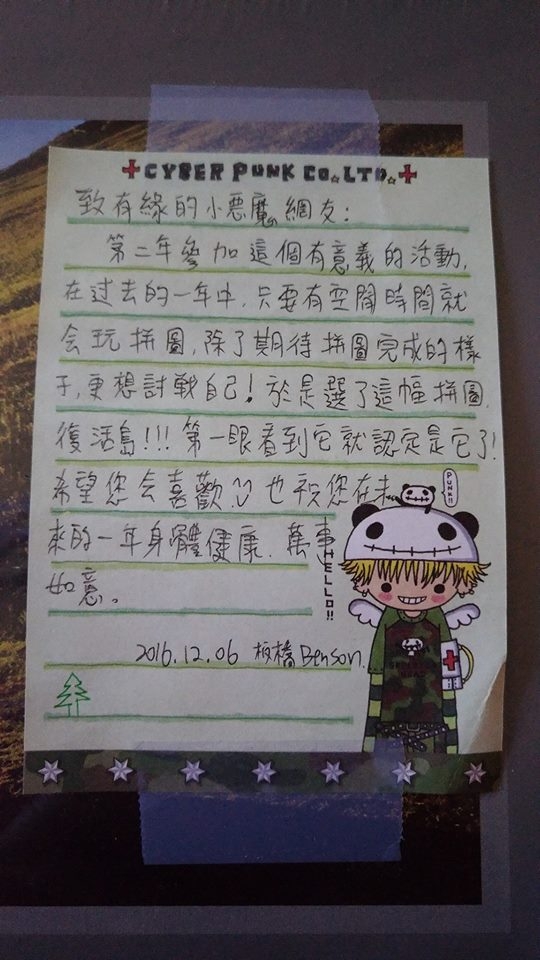 CYBER PUNK CO. LTD.
致有緣的小惡魔網友:
第二年參加這個有意義的活動,
在过去的一年中,只要有空閒時間就
会玩拼圖,除了期待拼圖完成的樣
子,更想討戰自己!於是選了這幅拼圖,
復活島!!!第一眼看到它就認定是它了!
希望您会喜歡!也祝您在未
來的一年身體健康.萬事
如意。
2016.12.06 板橋Benson....
PUNK!!
HELLO!!